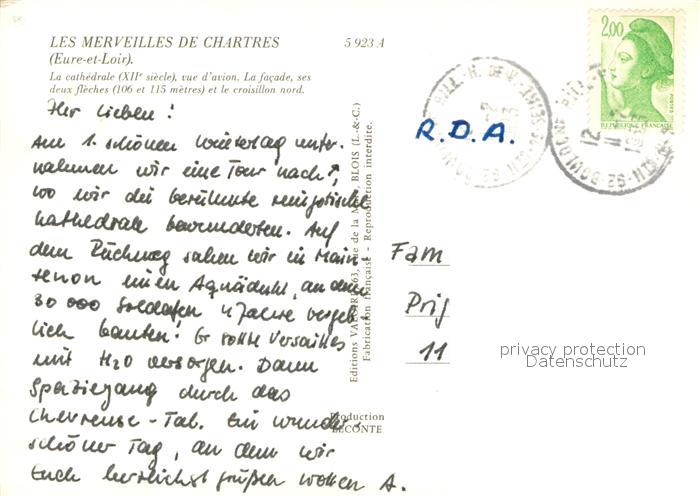 LES MERVEILLES DE CHARTRES
(Eure-et-Loir).
La cathédrale (XIIe siècle), vue d'avion. La façade, ses
deux flèches (106 et 115 mètres) et le croisillon nord.
5 923 A
Ihr Lieben!
Am 1. schönen Wintertag unter-
nahmen wir eine Tour nach ↑,
wo wir die berühmte reingotische
Kathedrale bewunderten. Auf
dem Rückweg sahen wir in Main-
tenon einen Aquädukt, an dem
30 000 Soldaten 4 Jahre vergeb-
lich bauten! Er sollte Versailles
mit H2O versorgen. Dann
Spaziergang durch das
Chevreuse-Tal. Ein wunder-
schöner Tag, an dem wir
Euch herzlichst grüßen wollen A.
Editions VALOIRE, 63, rue de la Mare, BLOIS (L.-&-C.)
Fabrication française - Reproduction interdite.
Production
LECONTE
R.D.A.
2,00
REPUBLIQUE FRANÇAISE
POSTES
12
11
Fam
Prij
11
privacy protection
Datenschutz